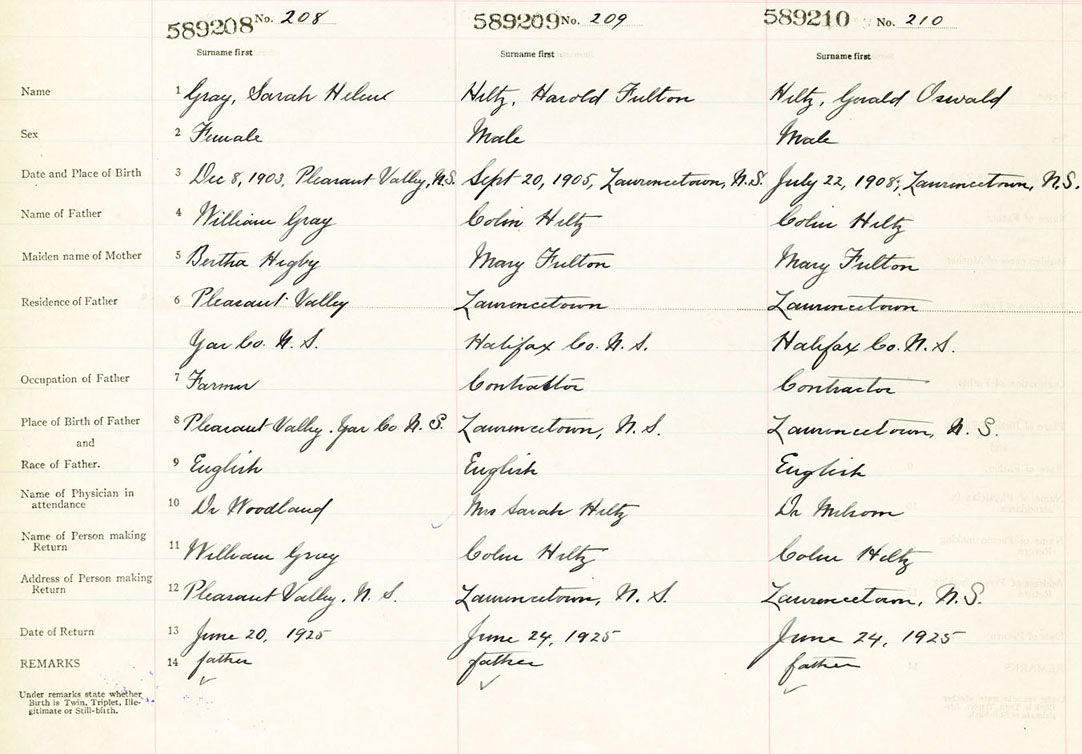 589208 No. 208 589209 No. 209 589210 No. 210
Surname first Surname first Surname first
Name 1 Gray, Sarah Helene Hiltz, Harold Fulton Hiltz, Gerald Oswald
Sex 2 Female Male Male
Date and Place of Birth 3 Dec 8, 1903, Pleasant Valley, N.S. Sept 20, 1905, Lawrencetown, N.S. July 22, 1908, Lawrencetown, N.S.
Name of Father 4 William Gray Colin Hiltz Colin Hiltz
Maiden name of Mother 5 Bertha Higby Mary Fulton Mary Fulton
Residence of Father 6 Pleasant Valley Lawrencetown Lawrencetown
Yar Co. N. S. Halifax Co. N. S. Halifax Co. N. S.
Occupation of Father 7 Farmer Contractor Contractor
Place of Birth of Father 8 Pleasant Valley. Yar Co N. S. Lawrencetown, N. S. Lawrencetown, N. S.
and
Race of Father. 9 English English English
Name of Physician in
attendance 10 Dr Woodland Mrs Sarah Hiltz Dr
Name of Person making
Return 11 William Gray Colin Hiltz Colin Hiltz
Address of Person making
Return 12 Pleasant Valley, N. S. Lawrencetown, N. S. Lawrencetown, N.S.
Date of Return 13 June 20, 1925 June 24, 1925 June 24, 1925
REMARKS 14 father father father
Under remarks state whether
Birth is Twin, Triplet, Ille-
gitimate or Still-birth.